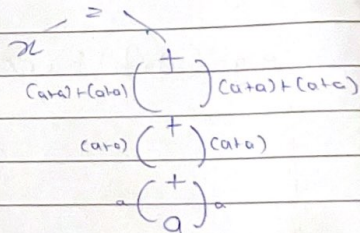 =
x
+
(a+a)+(a+a) ( ) (a+a)+(a+a)
+
(a+a) ( ) (a+a)
+
a ( ) a
a